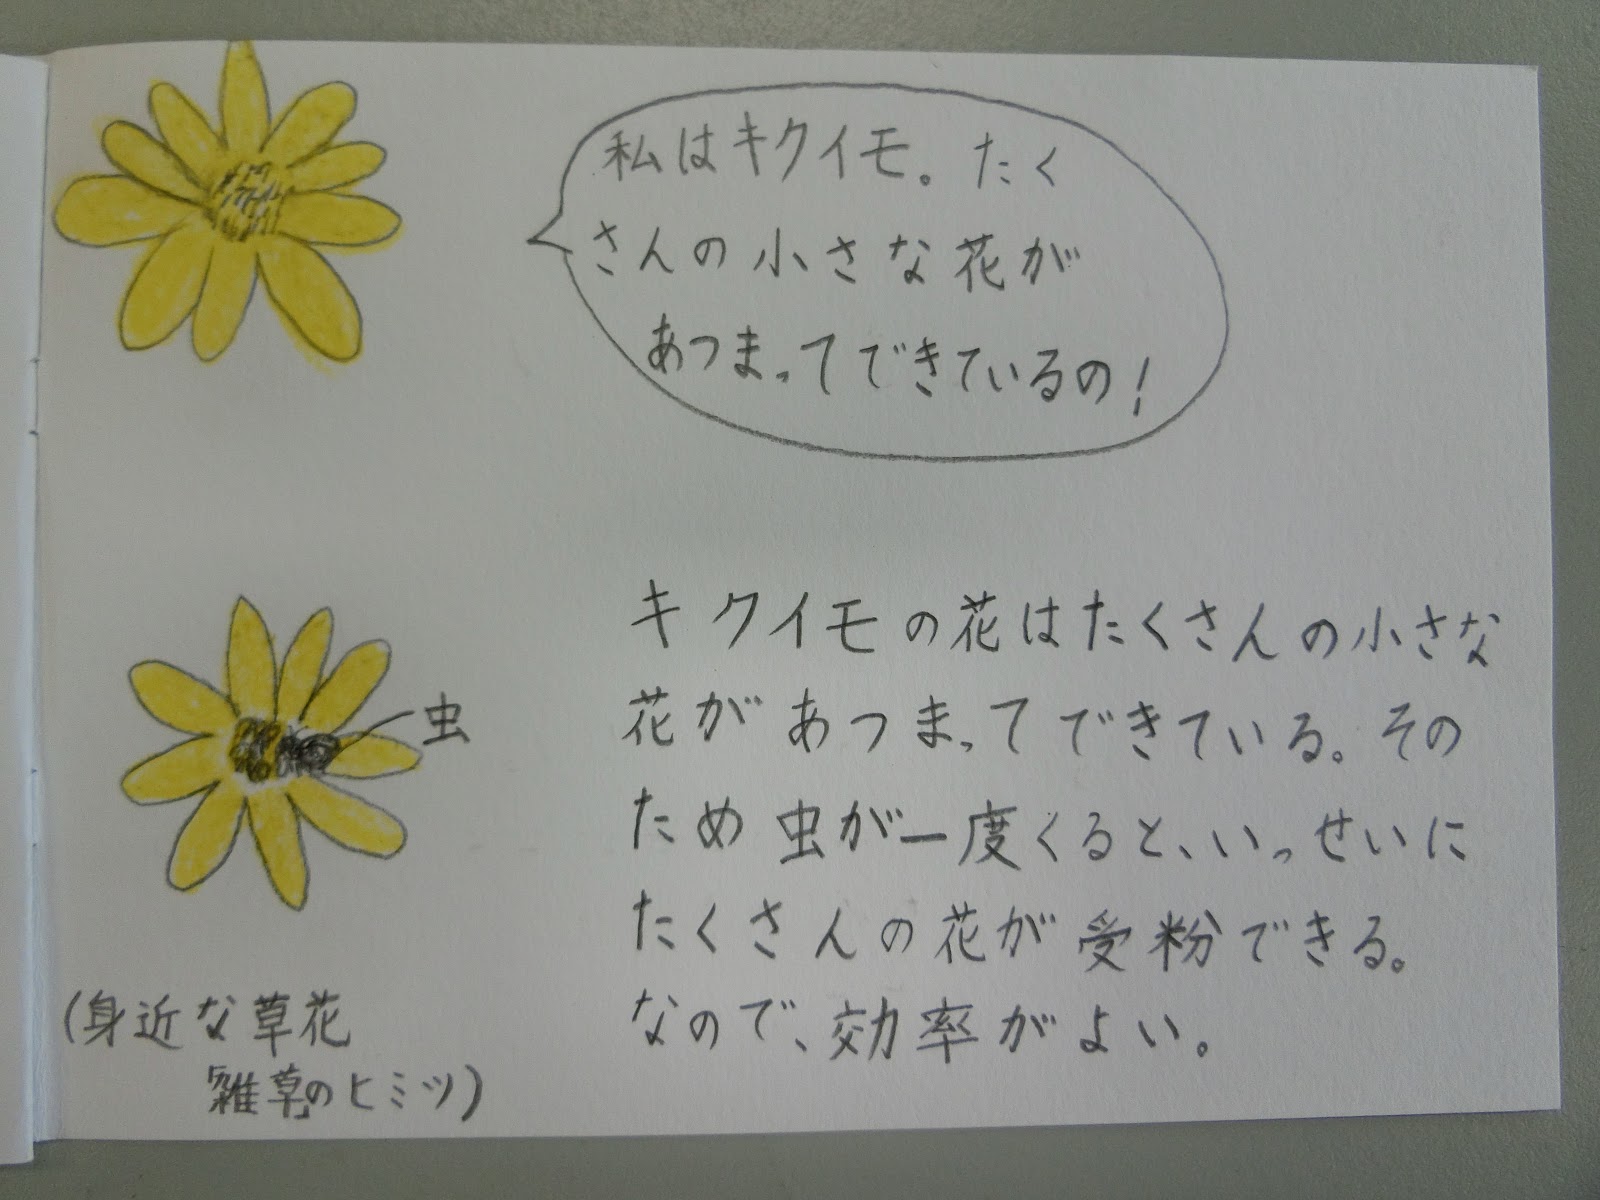 私はキクイモ。たく
さんの小さな花が
あつまってできているの!
キクイモの花はたくさんの小さな
花があつまってできている。その
ため虫が一度くると、いっせいに
たくさんの花が受粉できる。
なので、効率がよい。
虫
(身近な草花
「雑草」のヒミツ)